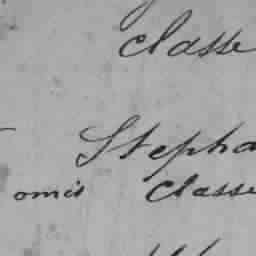 Classe
Stepha
omis Classe